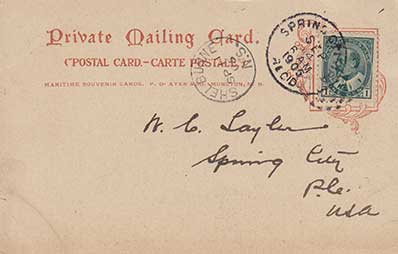 Private Mailing Card.
POSTAL CARD.—CARTE POSTALE.
MARITIME SOUVENIR CARDS. P. O' AYER & CO. MONCTON, N. B.
SHELBURNE N.S.
SP
SPRING CITY
SEP
6 AM
1905
REC'D.
1
W. C. Taylor
Spring City
Pa.
USA